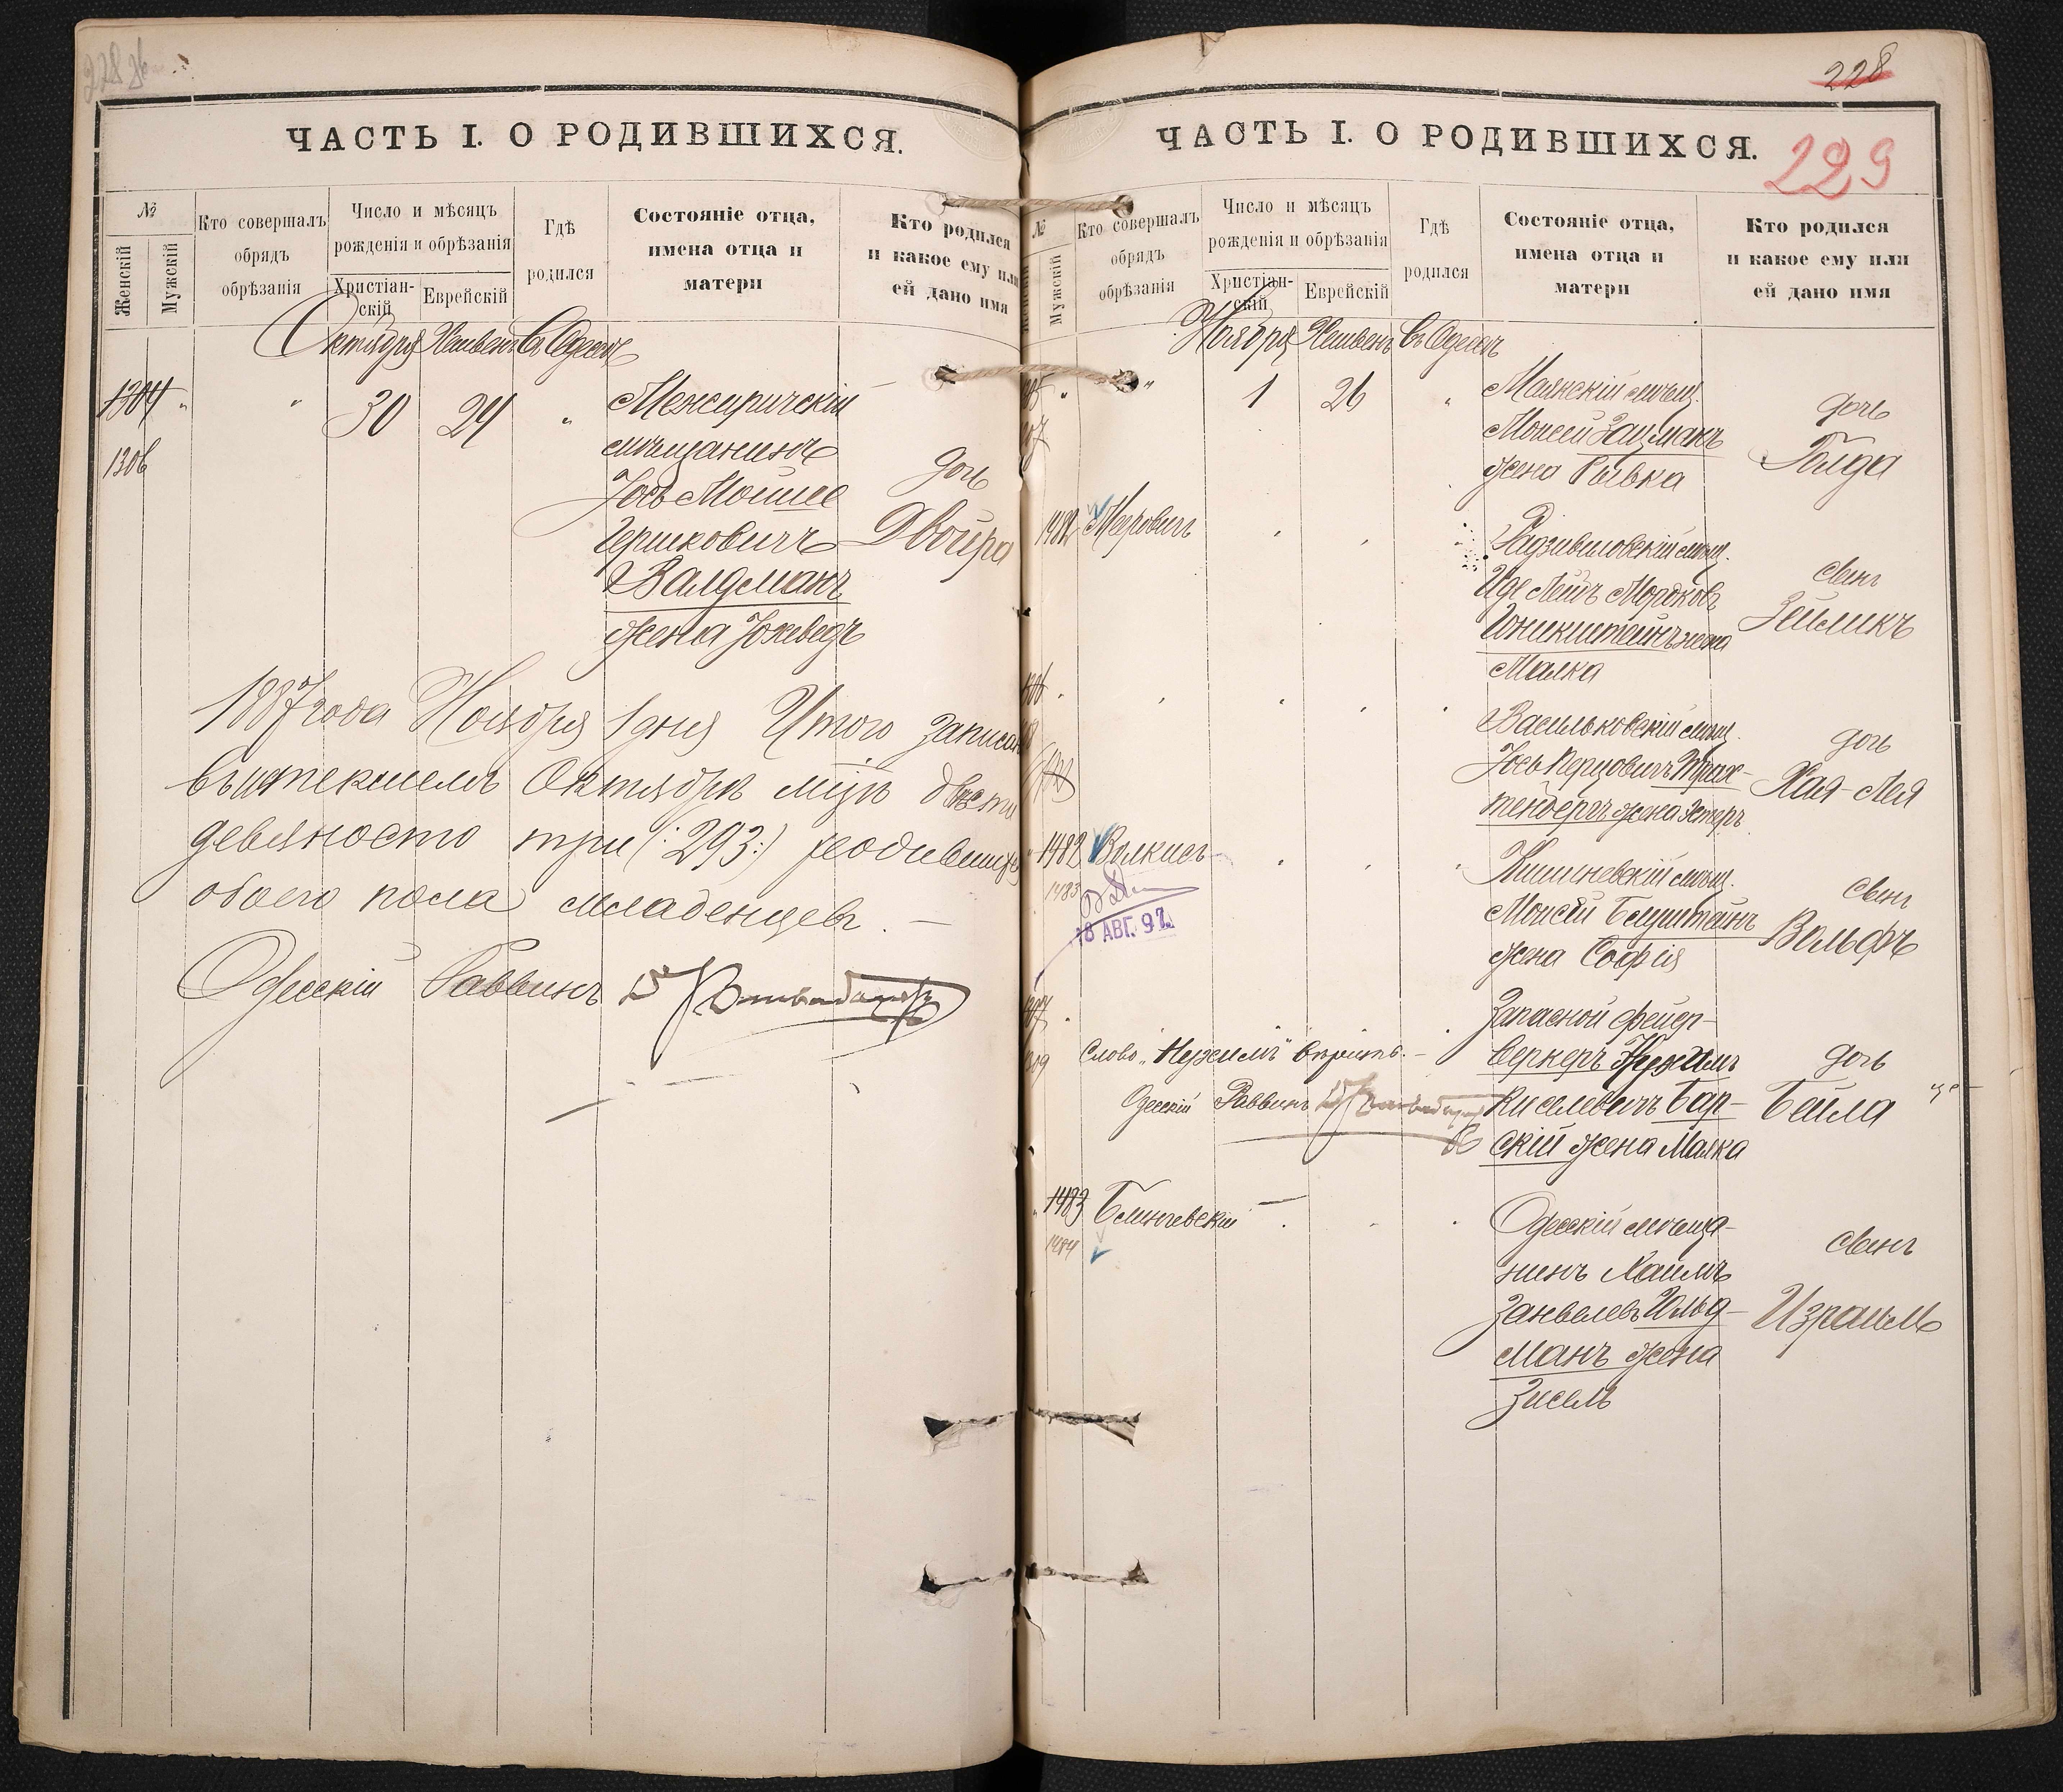 ЧАСТЬ I. О РОДИВШИХСЯ.
№
Женскій
Мужскій
Кто совершалъ
обрядъ
обрѣзанія
Число и мѣсяцъ
рожденія и обрѣзанія
Христіан-
скій
Еврейскій
Гдѣ
родился
Состояніе отца,
имена отца и
матери
Кто родился
и какое ему или
ей дано имя
Октября Хешвенъ Въ Одессѣ
1304 " " 30 24 "
1306
Межиричскій
мѣщанинъ
Іось Мойше
Гершковичъ
Валдманъ
жена Іохеведъ
дочь
Двойра
1887 года Ноября 1 дня Итого записано
въ истекшемъ Октябрѣ мцѣ двѣсти
девяносто три (:293:) родившихся
обоего пола младенцевъ. —
Одесскій Раввинъ Dr
228
229
ЧАСТЬ I. О РОДИВШИХСЯ.
№
Женскій
Мужскій
Кто совершалъ
обрядъ
обрѣзанія
Число и мѣсяцъ
рожденія и обрѣзанія
Христіан-
скій
Еврейскій
Гдѣ
родился
Состояніе отца,
имена отца и
матери
Кто родился
и какое ему или
ей дано имя
Ноября Хешвенъ Въ Одессѣ
" " 1 26 "
Маякскій мѣщ.
Моисей Зацманъ
жена Ривка
дочь
Голда
1482 Меровичъ
Радзивиловскій мѣщ.
Иде Лейбъ Мордков.
жена
Малка
сынъ
Зейликъ
Васильковскій мѣщ.
Іось Перцовичъ Трах-
тенбергъ жена Эстеръ
дочь
Хая-Лея
1482 Волкисъ
1483
18 АВГ. 97
Кишиневскій мѣщ.
Моисей Блуштейнъ
жена Софія
сынъ
Вольфъ
Запасной фейер-
веркеръ Нухимъ
Киселевичъ Бар-
скій жена Малка
дочь
Бейла
Слово "Нухимъ" вѣрить. —
Одесскій Раввинъ Dr
1483 Блинчевскій
1484
Одесскій мѣща-
нинъ Хаимъ
Занвелевъ Гольд-
манъ жена
Зисель
сынъ
Израиль